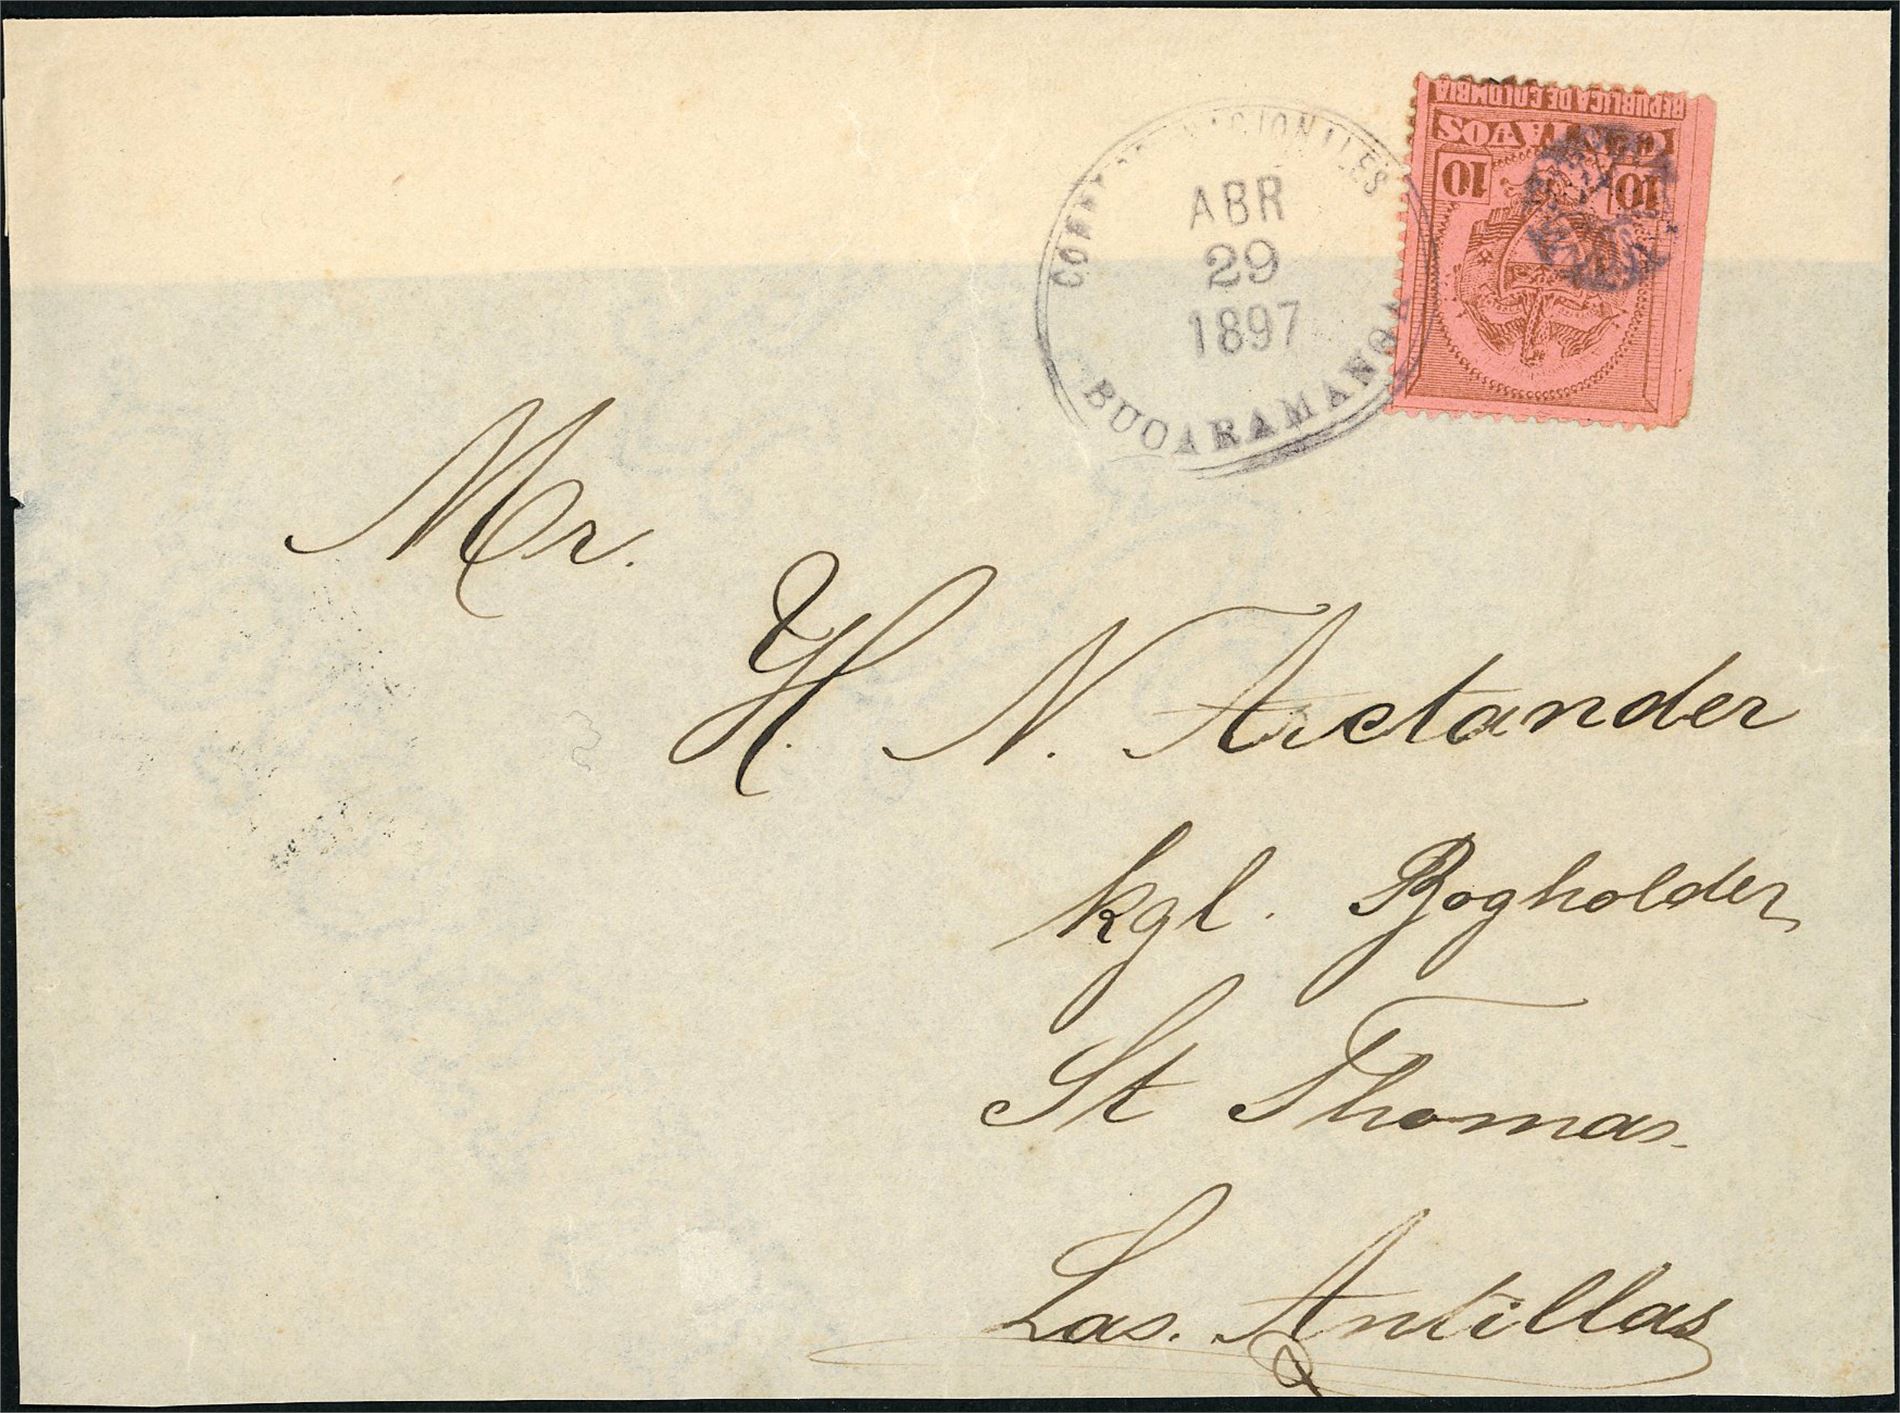 CORREOS NACIONALES
ABR
29
1897
BUCARAMANGA
REPUBLICA DE COLOMBIA
CENTAVOS
10 10
Mr.
H. N. Arctander
kgl. Bogholder
St Thomas.
Las. Antillas